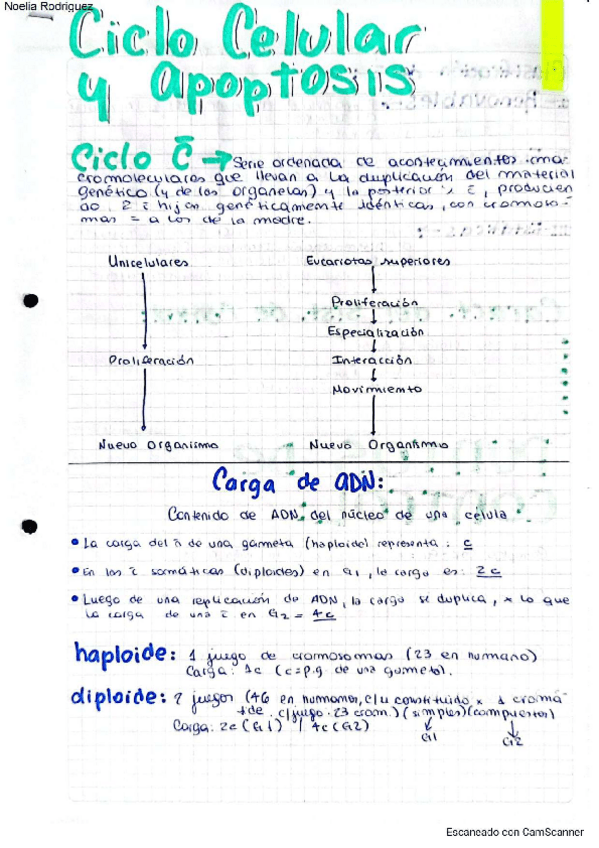 Noelia Rodriguez
Ciclo Celular
y apoptosis
Ciclo c̄ → Serie ordenada de acontecimientos ma-
cromoleculares que llevan a la duplicación del material
genético (y de los organelas) y la posterior c̄, producien
do 2 c̄ hijas genéticamente idénticas, con cromoso-
mas = a los de la madre.
Unicelulares Eucariotas superiores
Proliferación
Especialización
Proliferación Interacción
Movimiento
Nuevo Organismo Nuevo Organismo
Carga de ADN:
Contenido de ADN del núcleo de una célula
• La carga del n̄ de una gameta (haploide) representa: c
• En las c̄ somáticas (diploides) en G1, la carga es: 2c
• Luego de una replicación de ADN, la carga se duplica, x lo que
la carga de una c̄ en G2 = 4c
haploide: 1 juego de cromosomas (23 en humano)
Carga: 1c (c=p.g de una gameto).
diploide: 2 juegos (46 en humanos, c/u constituido x 1 cromá
tde. c/juego 23 crom.) (simples) (compuestos)
Carga: 2c (G1) / 4c (G2) G1 G2
Escaneado con CamScanner